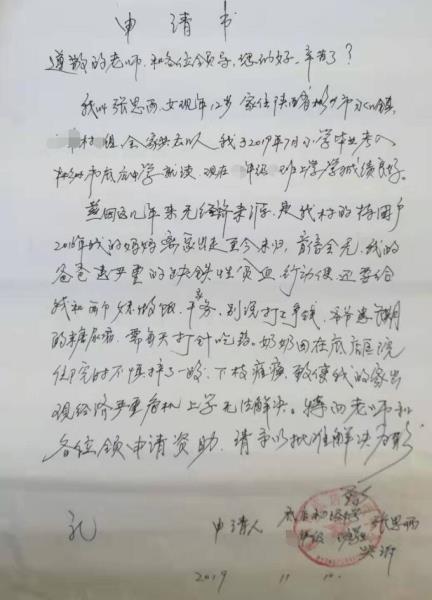 申请书
尊敬的老师、和各位领导，您们好，辛苦了？
我叫张思雨，女现年12岁 家住陕西省彬州市永乐镇
村 组，全家共六口人 我于2019年7月小学毕业考入
彬州市底店中学就读，现在 年级 班上学，学习成绩良好。
因这几年来无经济来源，是我村的特困户
2016年我的妈妈离家出走至今未归，音信全无，我的
爸爸患严重的缺铁性贫血，行动不便，还要给
我和两个妹妹做饭，家务，别说打工挣钱，爷爷患
的糖尿病，需每天打针吃药。奶奶因在底店医院
住院时不慎摔了一跤，下肢瘫痪，致使我的家出
现经济严重危机上学无法解决。特向老师和
各位领导申请资助，请予以批准解决为盼
致
礼
申请人 底店初级中学 张思雨
年级 班
2019 11 10.